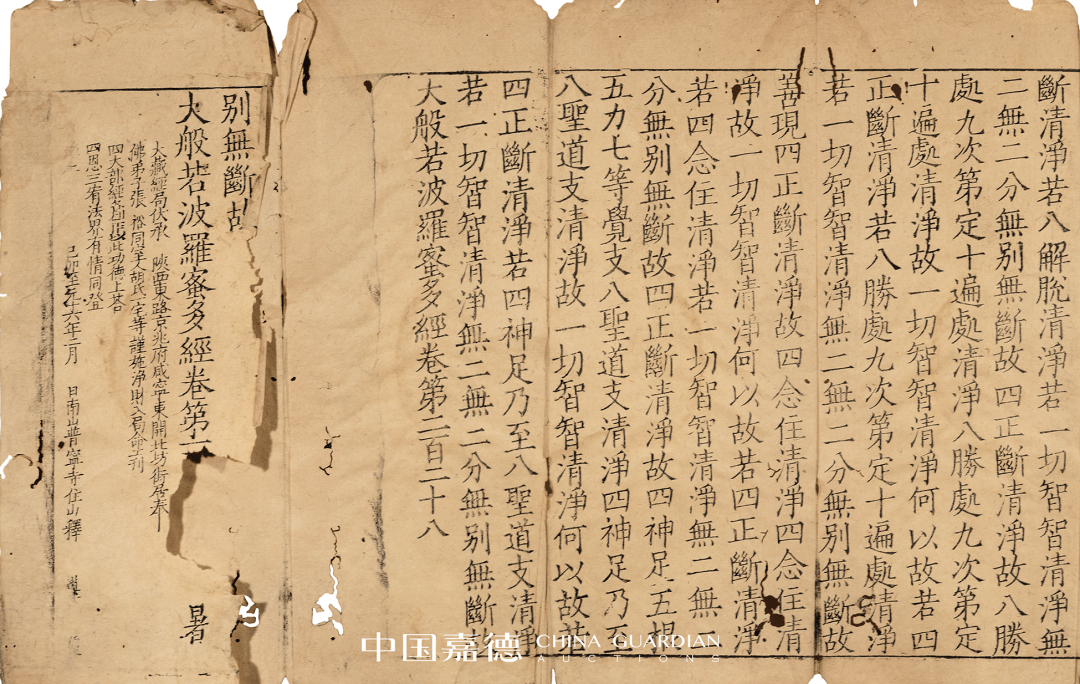 斷清淨若八解脫清淨若一切智智清淨無
二無二分無別無斷故四正斷清淨故八勝
處九次第定十遍處清淨八勝處九次第定
十遍處清淨故一切智智清淨何以故若四
正斷清淨若八勝處九次第定十遍處清淨
若一切智智清淨無二無二分無別無斷故
善現四正斷清淨故四念住清淨四念住清
淨故一切智智清淨何以故若四正斷清淨
若四念住清淨若一切智智清淨無二無二
分無別無斷故四正斷清淨故四神足五根
五力七等覺支八聖道支清淨四神足乃至
八聖道支清淨故一切智智清淨何以故若
四正斷清淨若四神足乃至八聖道支清淨
若一切智智清淨無二無二分無別無斷
大般若波羅蜜多經卷第二百二十八
別無斷故
大般若波羅蜜多經卷第 暑
大藏經局伏承 陝西東路京兆府咸寧東開北坊街居奉
佛弟子張 裕同室人胡氏一宅等謹施淨財入局命刊
四大部經 此功德上荅
四恩三有法界有情同登
至元十六年二月 日南山普寧寺住山釋
中国嘉德 CHINA GUARDIAN
AUCTIONS